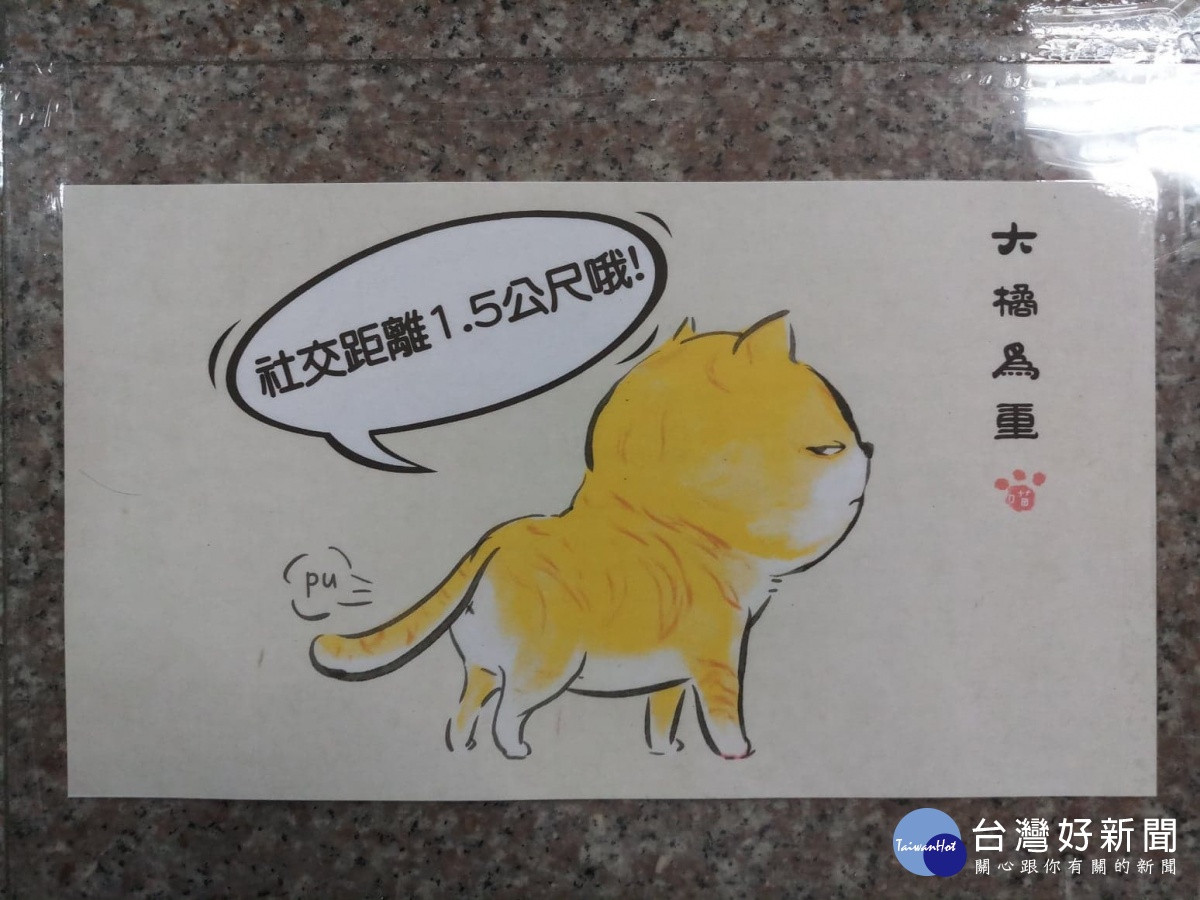 社交距離1.5公尺哦!
大橘為重
pu
TaiwanHot
台灣好新聞
關心跟你有關的新聞